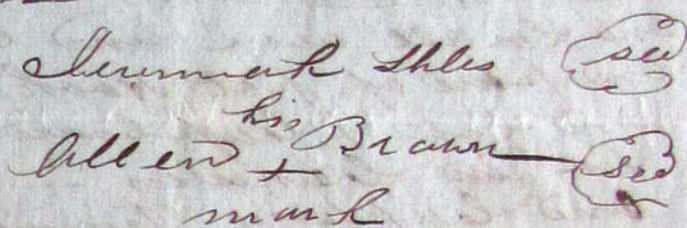 Jeremiah Shles seal
his
Allen + Brown seal
mark